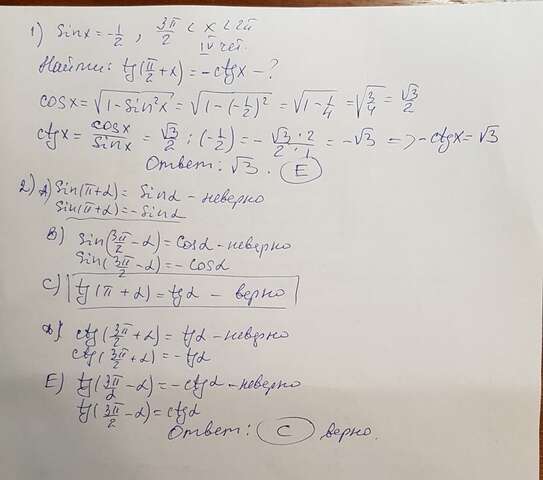 1) Sinx = -1/2, 3π/2 < x < 2π
IV чет.
Найти: tg(π/2 + x) = -ctgx - ?
cosx = √(1 - sin²x) = √(1 - (-1/2)²) = √(1 - 1/4) = √(3/4) = √3/2
ctgx = cosx/sinx = √3/2 : (-1/2) = - √3·2/2·1 = -√3 => -ctgx = √3
Ответ: √3. E
2) A) Sin(π+α) = Sinα - неверно
Sin(π+α) = -Sinα
B) Sin(3π/2 - α) = cosα - неверно
Sin(3π/2 - α) = -cosα
C) tg(π + α) = tgα - верно
D) ctg(3π/2 + α) = tgα - неверно
ctg(3π/2 + α) = -tgα
E) tg(3π/2 - α) = -ctgα - неверно
tg(3π/2 - α) = ctgα
Ответ: C верно.